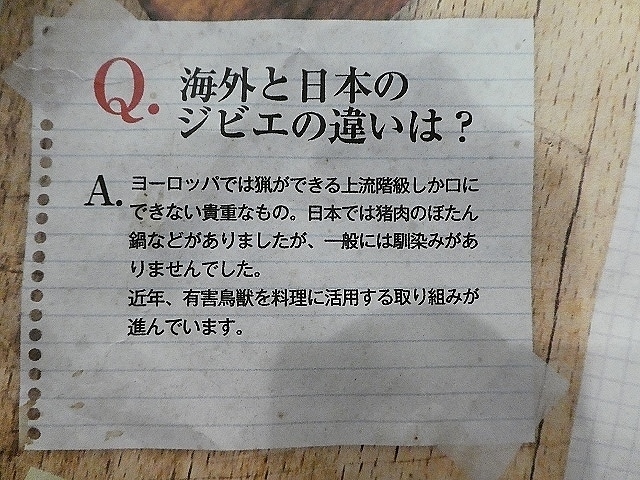 Q. 海外と日本の
ジビエの違いは？
A. ヨーロッパでは猟ができる上流階級しか口に
できない貴重なもの。日本では猪肉のぼたん
鍋などがありましたが、一般には馴染みがあ
りませんでした。
近年、有害鳥獣を料理に活用する取り組みが
進んでいます。